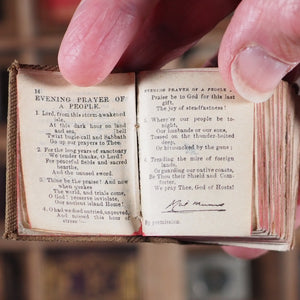 14
EVENING PRAYER OF
A PEOPLE.
1. Lord, from this storm-awakened
isle,
At this dark hour on land
and sea, [bell
'Twixt bugle-call and Sabbath
Go up our prayers to Thee.
2. For the long years of sanctuary
We tender thanks, O Lord!
For peaceful fields and sacred
hearths,
And the unused sword.
3. Thine be the praise! And now
when quakes
The world, and trials come,
O God! preserve inviolate,
4. O had we dwelt untried, unproved,
And missed this hour of
EVENING PRAYER OF A PEOPLE.
Praise be to God for this last
gift,
The joy of steadfastness!
5. Where'er our people be to-
night,
Our husbands or our sons,
Tossed on the thunder-bolted
deep,
Or by the guns,
6. Tending the mire of foreign
lands,
Or guarding our native coasts,
Be Thou their Shield and Com-
forter,
We pray Thee, God of Hosts!
By permission.